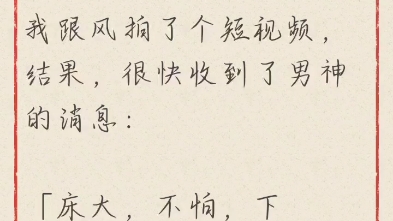 我跟风拍了个短视频，
结果，很快收到了男神
的消息：
「床大，不怕，下